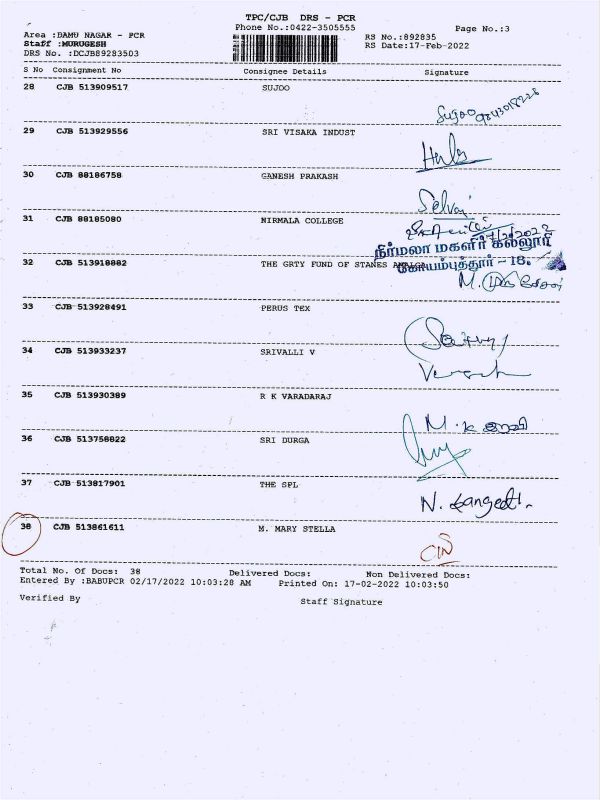 TPC/CJB DRS - PCR
Phone No.:0422-3505555
Page No.:3
Area :DAMU NAGAR - PCR
Staff :MURUGESH
DRS No. :DCJB89283503
RS No.:892835
RS Date:17-Feb-2022
S No Consignment No Consignee Details Signature
28 CJB 513909517 SUJOO
Sujoo 9843018228
29 CJB 513929556 SRI VISAKA INDUST
30 CJB 88186758 GANESH PRAKASH
Selvaj
31 CJB 88185080 NIRMALA COLLEGE
நிர்மலா மகளிர் கல்லூரி
32 CJB 513918882 THE GRTY FUND OF STANES
கோயம்புத்தூர் - 18.
33 CJB 513928491 PERUS TEX
34 CJB 513933237 SRIVALLI V
35 CJB 513930389 R K VARADARAJ
M.K
36 CJB 513758822 SRI DURGA
37 CJB 513817901 THE SPL
N. Sangeet
38 CJB 513861611 M. MARY STELLA
Total No. Of Docs: 38 Delivered Docs: Non Delivered Docs:
Entered By :BABUPCR 02/17/2022 10:03:28 AM Printed On: 17-02-2022 10:03:50
Verified By Staff Signature